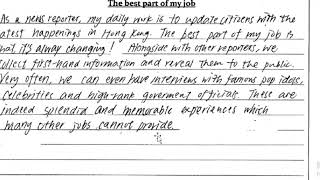 The best part of my job
As a news reporter, my daily work is to update citizens with the
latest happenings in Hong Kong. The best part of my job is
that it's alway changing! Alongside with other reporters, we
collect first-hand information and reveal them to the public.
Very often, we can even have interviews with famous pop idols,
celebrities and high-rank government officials. These are
indeed splendid and memorable experiences which
many other jobs cannot provide.